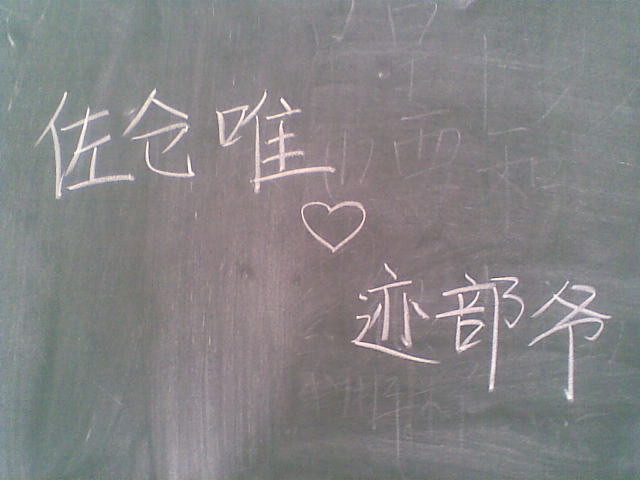 佐仓唯
♡
迹部爷